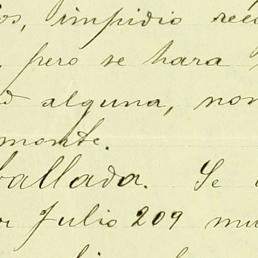 os, impidio reco
, pero se hara
d alguna, non
monte.
ballada. Se
or Julio 209 mu